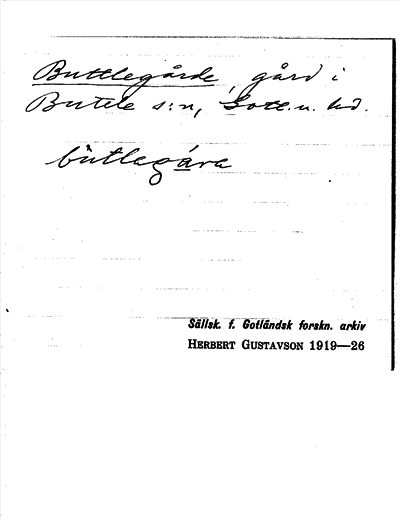 Buttlegårde, gård i
Butele s:n, Gotl.u. hd.
bùtlegá̱ra
Sällsk. f. Gotländsk forskn. arkiv
HERBERT GUSTAVSON 1919—26